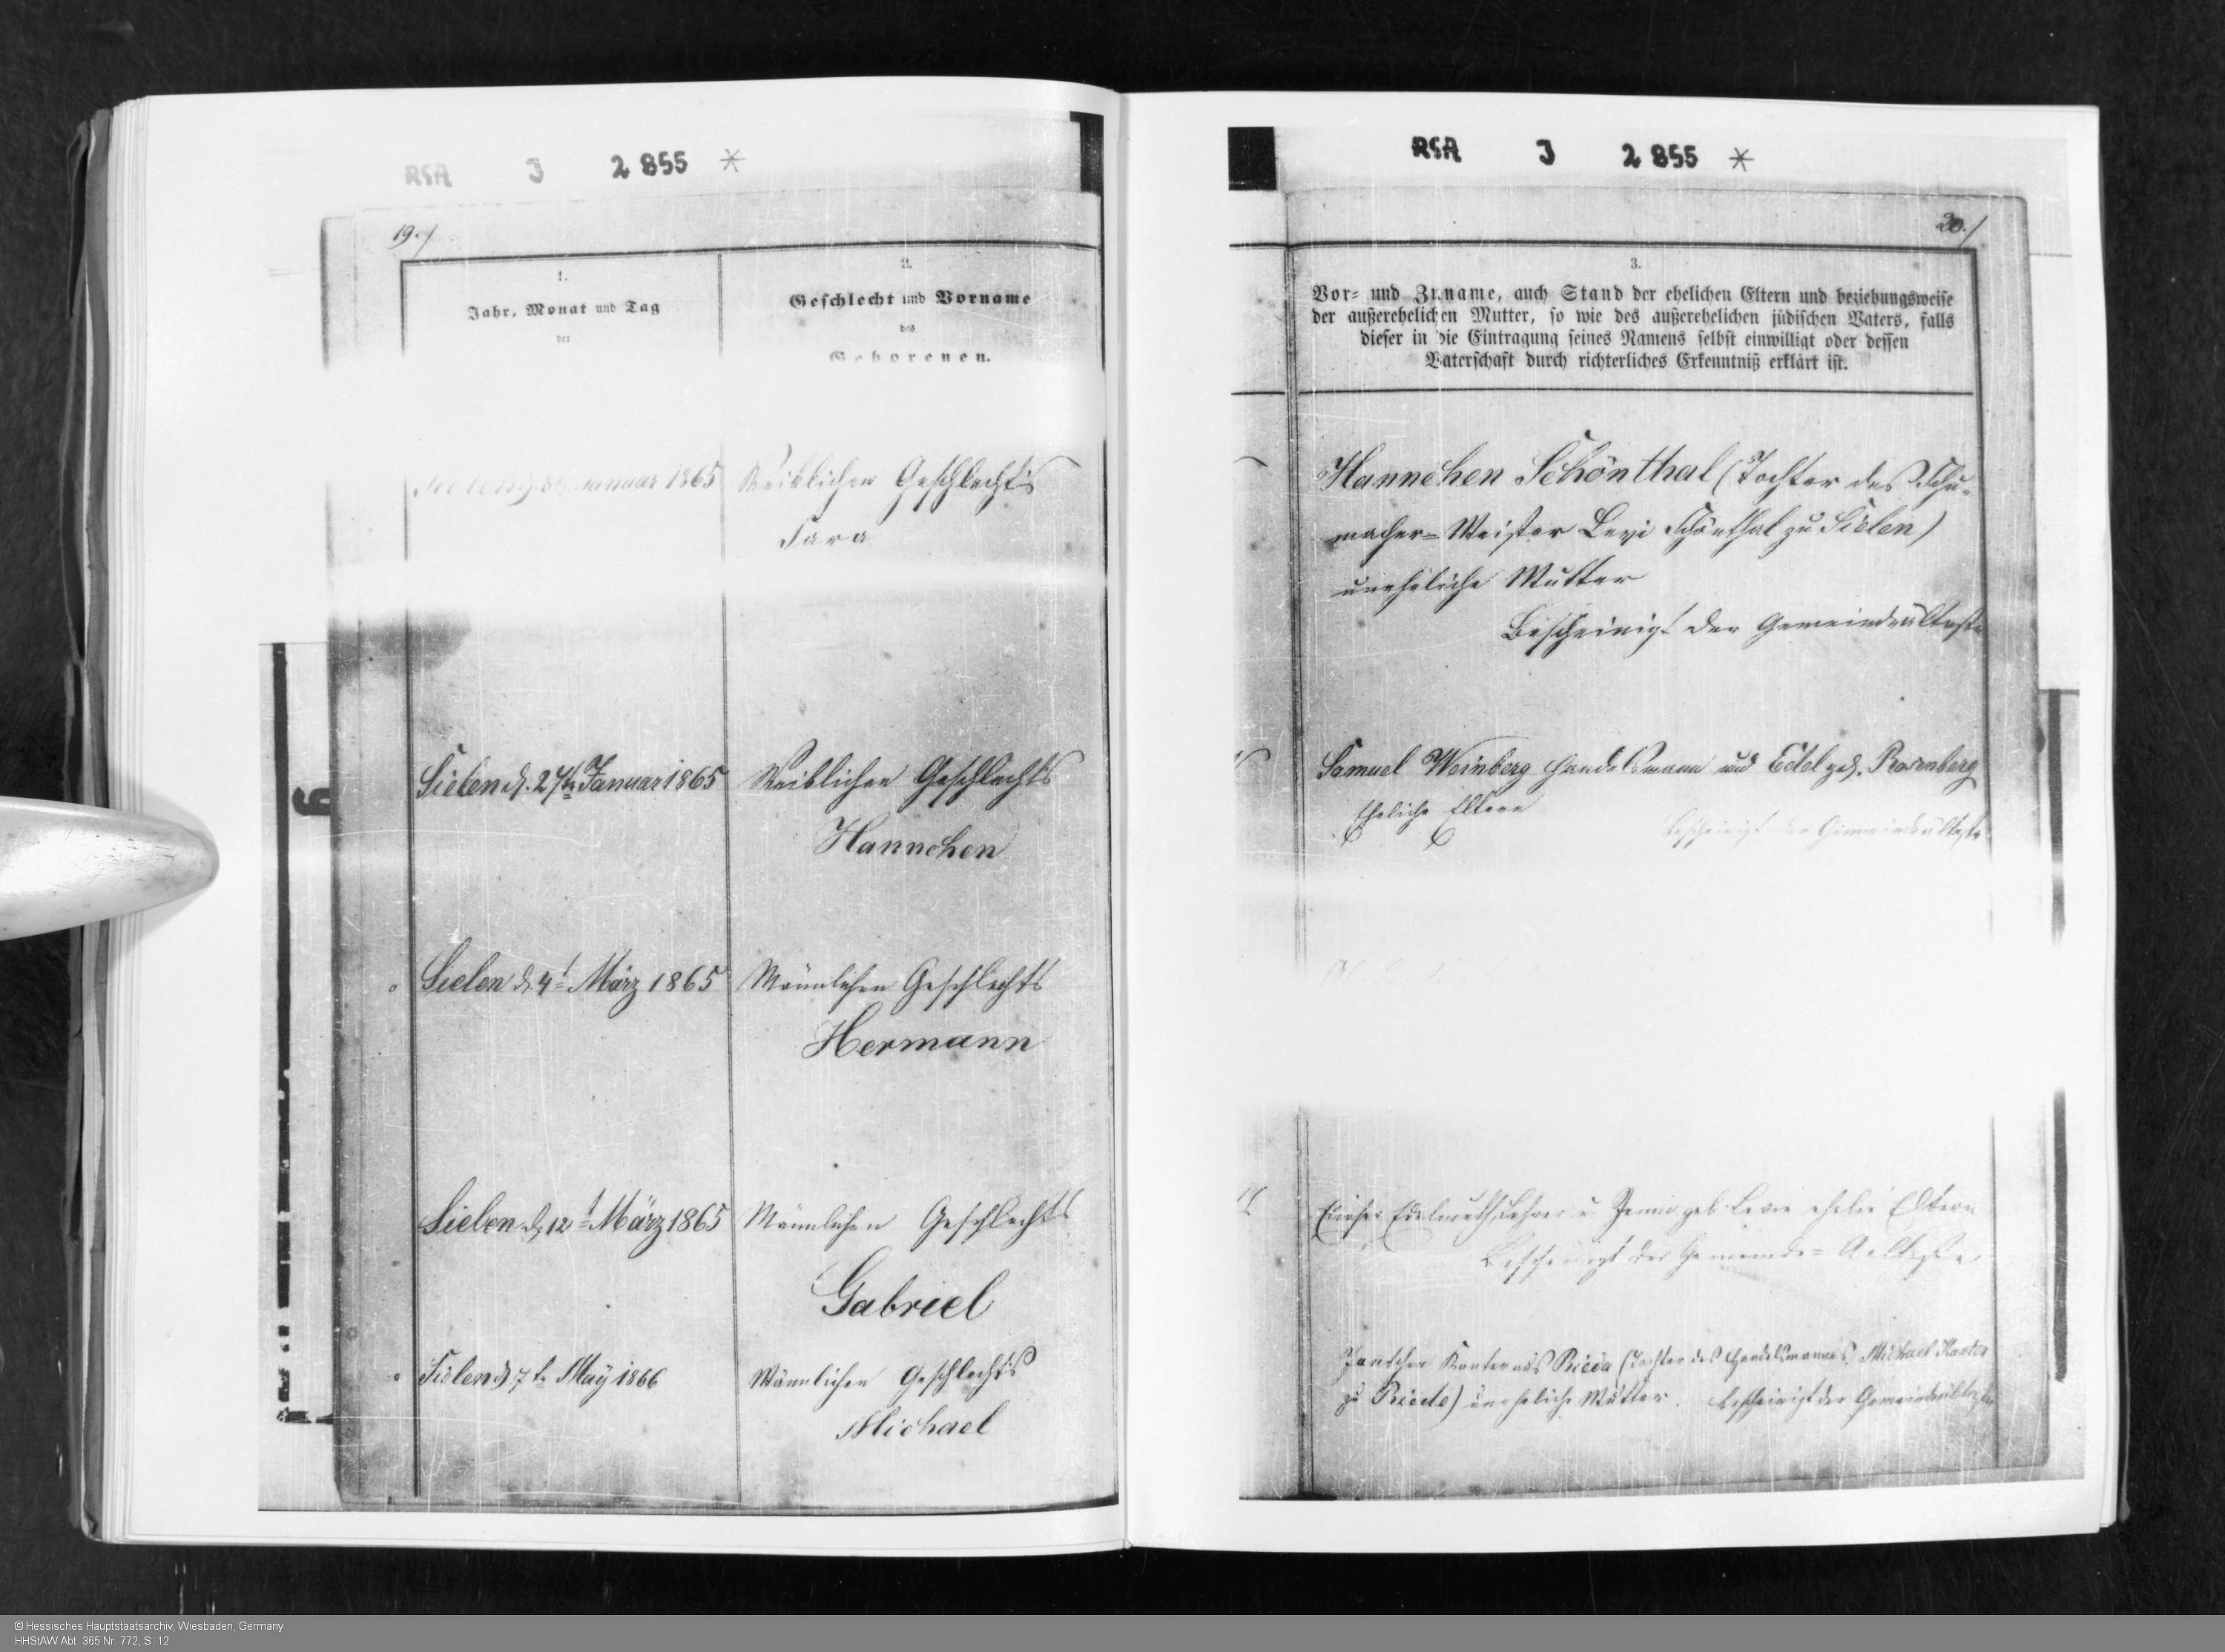 RSA J 2855 *
19.
1.
Jahr, Monat und Tag
der
2.
Geschlecht und Vorname
des
Geborenen.
Januar 1865 Weiblichen Geschlechts
Sara
Sielen d. 24ten Januar 1865 Weiblichen Geschlechts
Hannchen
Sielen d. 4t März 1865 Männlichen Geschlechts
Hermann
Sielen d. 12t März 1865 Männlichen Geschlechts
Gabriel
Sielen d. 7t May 1866 Männlichen Geschlechts
Michael
6
RSA J 2855 *
20.
3.
Vor= und Zuname, auch Stand der ehelichen Eltern und beziehungsweise
der außerehelichen Mutter, so wie des außerehelichen jüdischen Vaters, falls
dieser in die Eintragung seines Namens selbst einwilligt oder dessen
Vaterschaft durch richterliches Erkenntniß erklärt ist.
Hannchen Schönthal (Tochter des Schu-
macher=Meister Levi Schönthal zu Sielen)
uneheliche Mutter
Bescheinigt der Gemeindeälteste
Samuel Weinberg Handelsmann und Edel geb. Rosenberg
Eheliche Eltern
Bescheinigt der Gemeindeälteste
Edelmuth, Lehrer u geb. Levie Eltern
Bescheinigt der Gemeinde=Aelteste
aus (Tochter des Handelsmannes Michael
zu uneheliche Mutter. Bescheinigt der Gemeindeälteste
© Hessisches Hauptstaatsarchiv, Wiesbaden, Germany
HHStAW Abt. 365 Nr. 772, S. 12